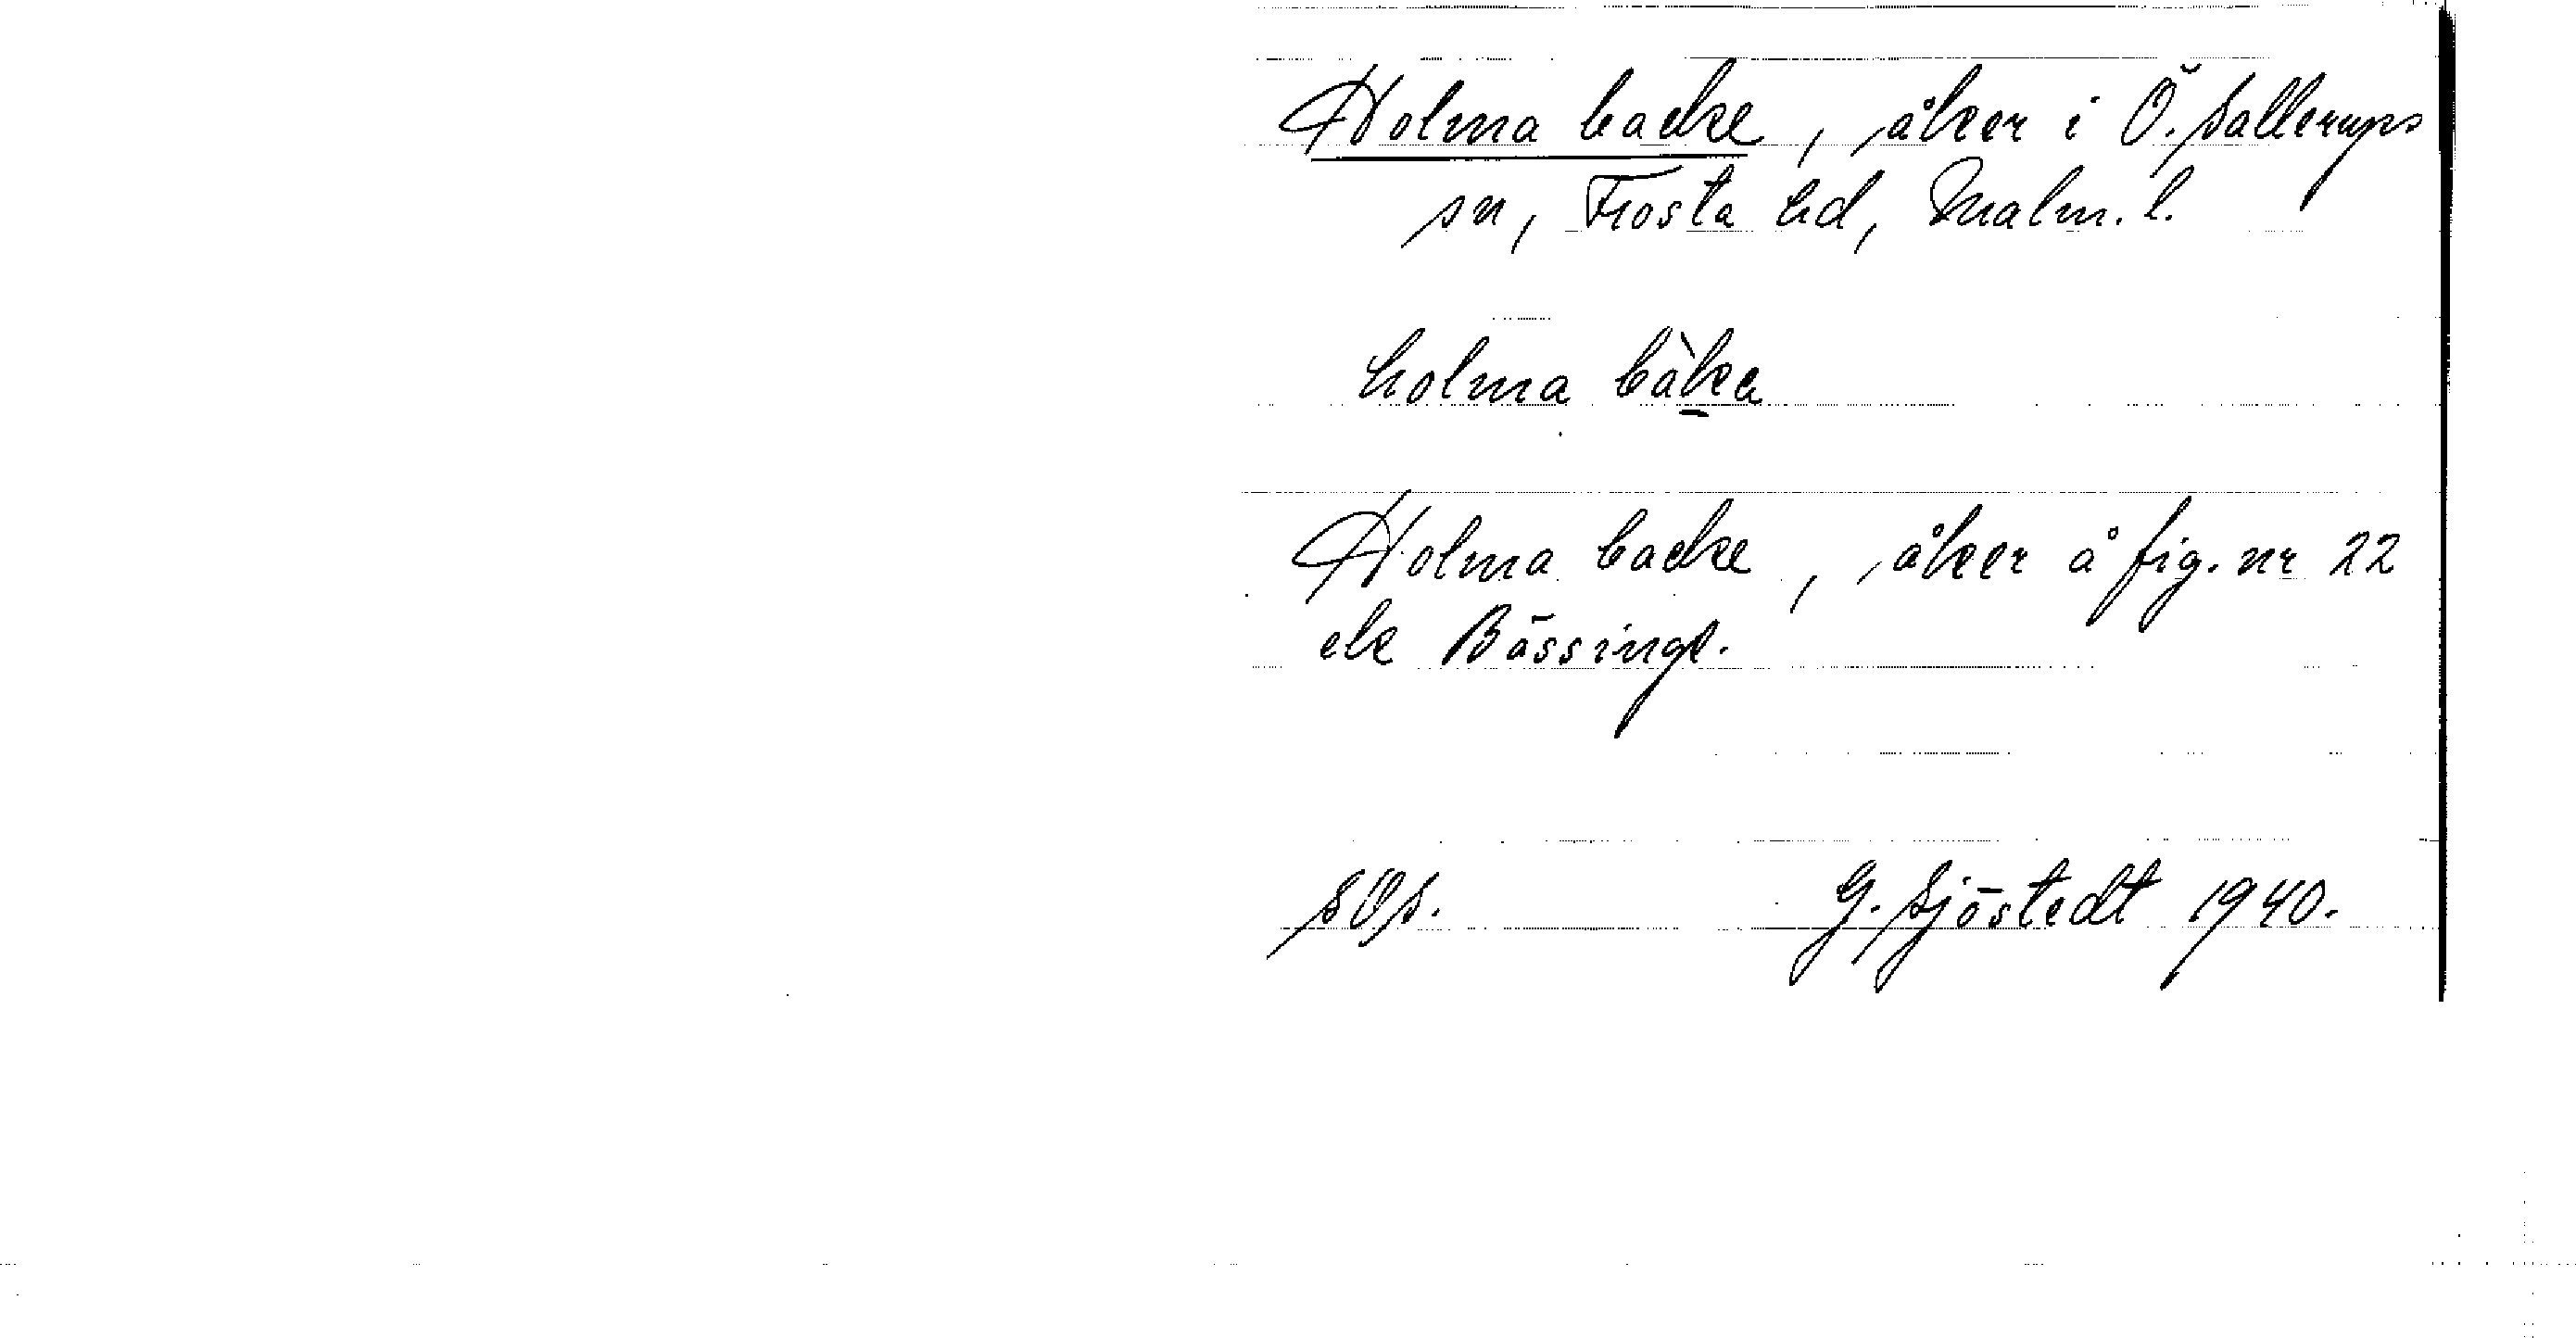 Holma backe, åker i Ö. Sallerups
sn, Frosta hd, Malm. l.
holma bàka
Holma backe, åker å fig. nr 22
ek Bössinge.
sOs. G. Sjöstedt 1940.